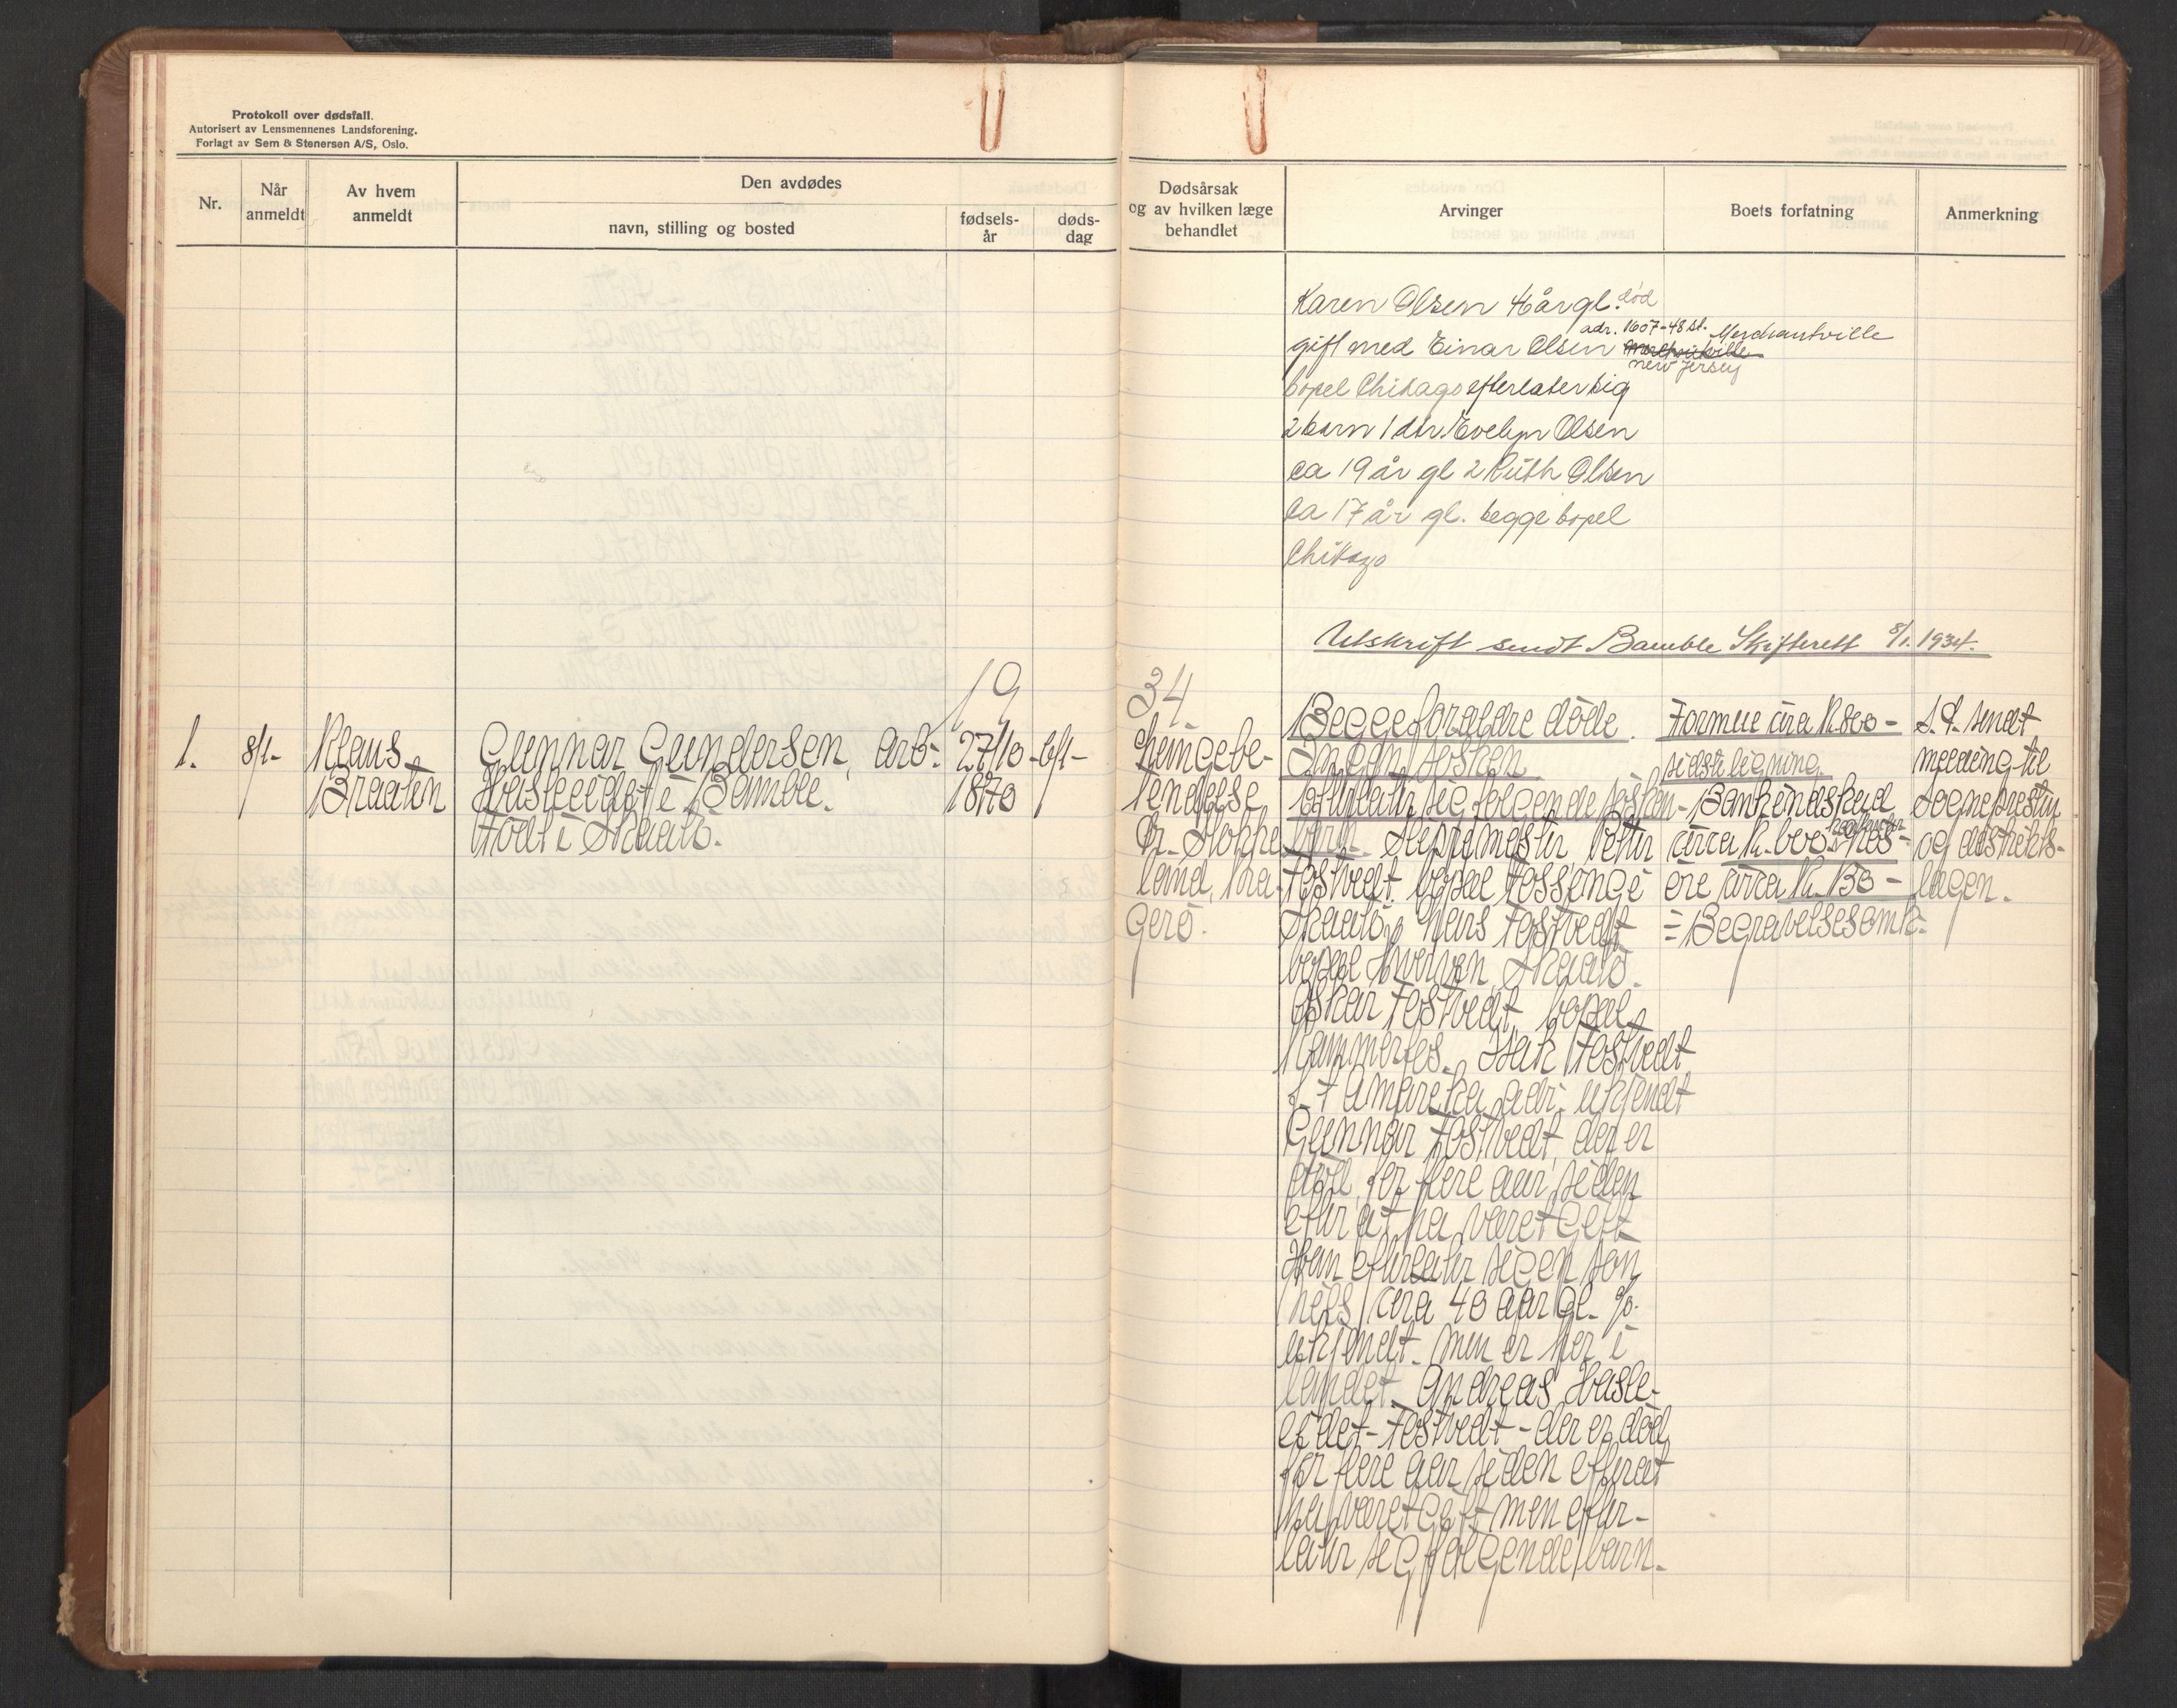 Protokoll over dødsfall.
Autorisert av Lensmennenes Landsforening.
Forlagt av Sem & Stenersen A/S, Oslo.
Nr.
Når
anmeldt
Av hvem
anmeldt
Den avdødes
navn, stilling og bosted
fødsels-
år
døds-
dag
Dødsårsak
og av hvilken læge
behandlet
Arvinger
Boets forfatning
Anmerkning
Karen Olsen
gl. død
adr. 1607-48 st. Merchantville
gift med Einar Olsen
New Jersey
bopel Chikago efterlater sig
2 barn 1 dtr Evelyn Olsen
ca 19 år gl 2 Ruth Olsen
ca 17 år gl. begge bopel
Chikago
Utskrift sendt Bamble Skifterett 8/1. 1934.
19
34
1.
8/1-
Klaus
Braaten
Gunnar Gundersen, arb.
Hasleeidet i Bamble.
Født i Skaatö.
27/10
1870
6/1-
Lungebe-
tendelse
Dr. Stokke
land, Kra-
gerö.
Begge foraldre döde.
Ingen sösken
efterlater sig følgende sösken-
barn. Skeppremester Petter
Tostvedt bopæl Fossenge
Skaatö, Lars Tostvedt
bopæl Skaatö.
Oskar Tostvedt bopæl
Kammerfos. Isak Tostvedt
i Amareka adr. ukjendt
Gunnar Tostvedt, der er
död for flere aar siden
efter at ha været gift
Han efterlater sig en sön
Nels cirka 40 aar gl. 
ukjendt. men er her i
landet. Andreas Hasle-
eidet - Tostvedt - der er död
for flere aar siden efter at
ha været gift men efter-
later sig følgende barn.
Formue cirka K. 800 -
sidste ligning
Bankindskud
circa K. 600 -
øre circa K. 130 -
= Begravelsesomk.
S. d. sendt
melding til
Sogneprestin
og distrikts-
lægen.